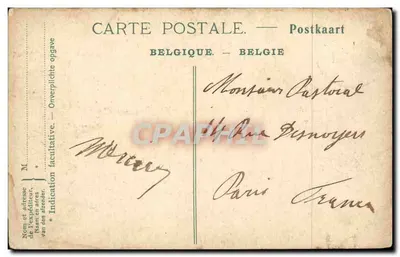 CARTE POSTALE. — Postkaart
BELGIQUE. — BELGIE
Monsieur Pastoral
Rue Desnoyers
Paris
France
M
Nom et adresse
de l'expéditeur.
Naam en adres
van den afzender.
* Indication facultative. — Onverplichte opgave
CPAPHIL